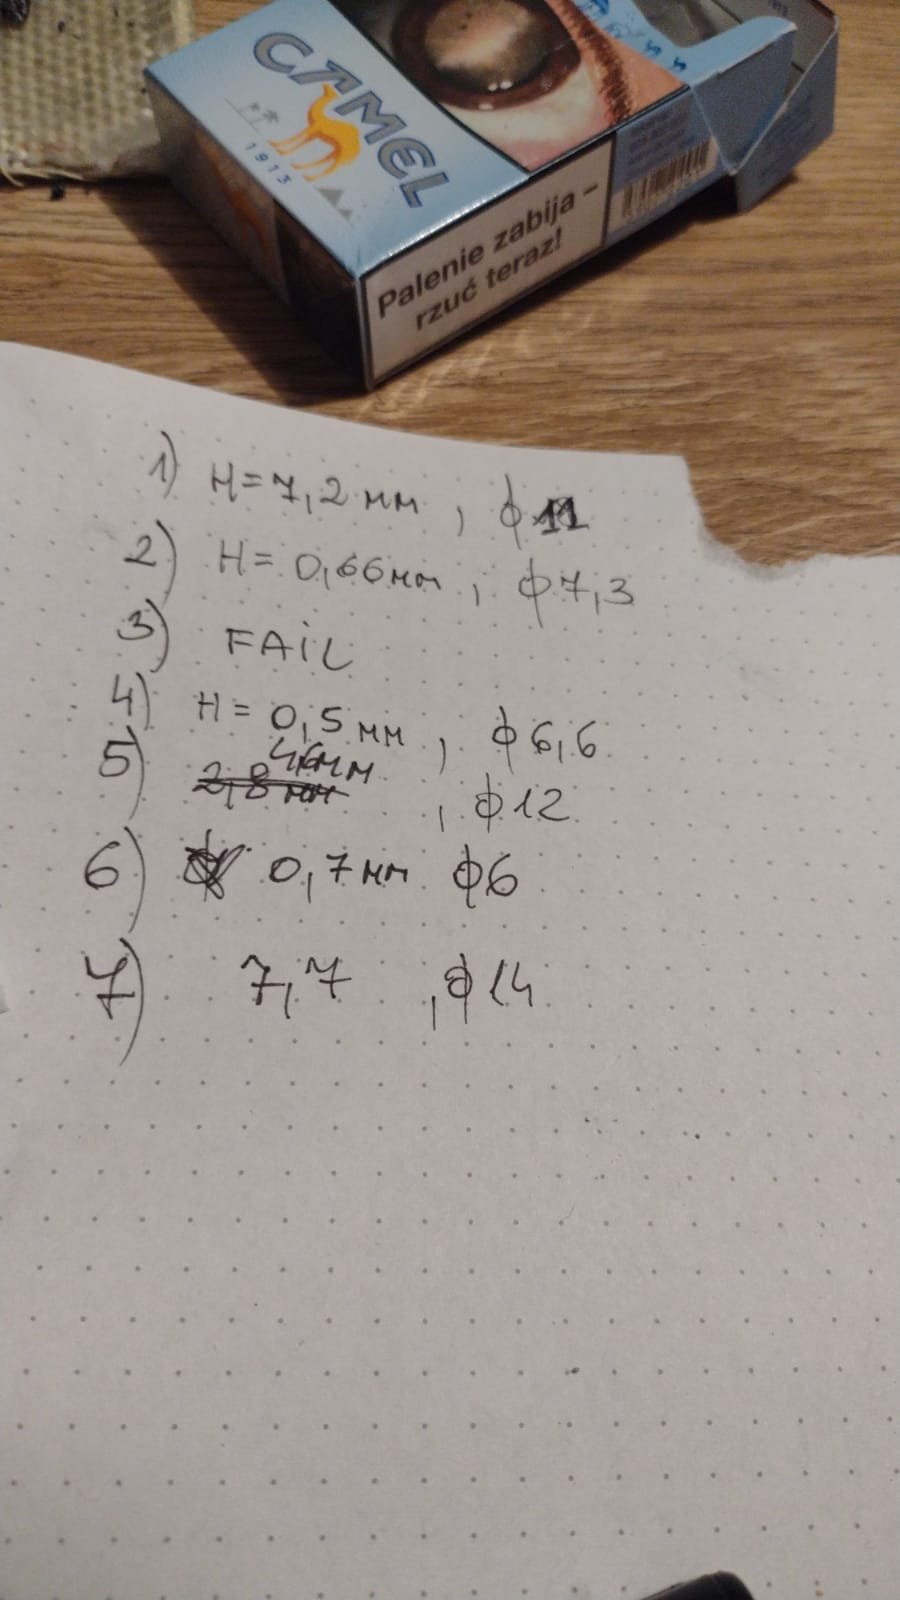 CAMEL
1913
Palenie zabija –
rzuć teraz!
1) H=7,2 мм , ϕ11
2) H= 0,66мм , ϕ7,3
3) FAiL
4) H = 0,5 мм , ϕ6,6
5) 2,8 мм 4,6мм , ϕ12
6) 0,7мм ϕ6
7) 7,7 , ϕ14